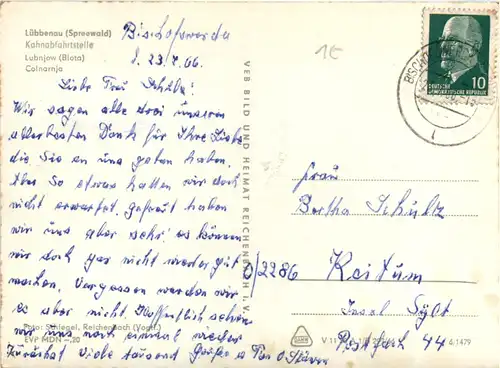 Lübbenau (Spreewald)
Kahnabfahrtstelle
Lubnjow (Błota)
Colnarnja
Bischofswerda
d. 23.4.66.
Liebe Frau Schulz!
Wir sagen alle drei unseren
allerbesten Dank für Ihre Liebe
die Sie an uns getan haben.
Aber So etwas hatten wir doch
nicht erwartet, gefreut haben
wir uns aber sehr. es können
wir doch gar nicht wieder gut
machen. Vergessen werden wir
es aber nicht. Hoffentlich sehen
wir uns noch einmal wieder
Zunächst Viele tausend Grüße
Foto: Schlegel, Reichenbach (Vogtl.)
EVP MDN -,20
VEB BILD UND HEIMAT REICHENBACH I. V.
1€
BISCHO
10
DEUTSCHE
DEMOKRATISCHE REPUBLIK
Frau
Bertha Schultz
2286 Keitum
Insel Sylt
Postfach 44
V 11
4/1479